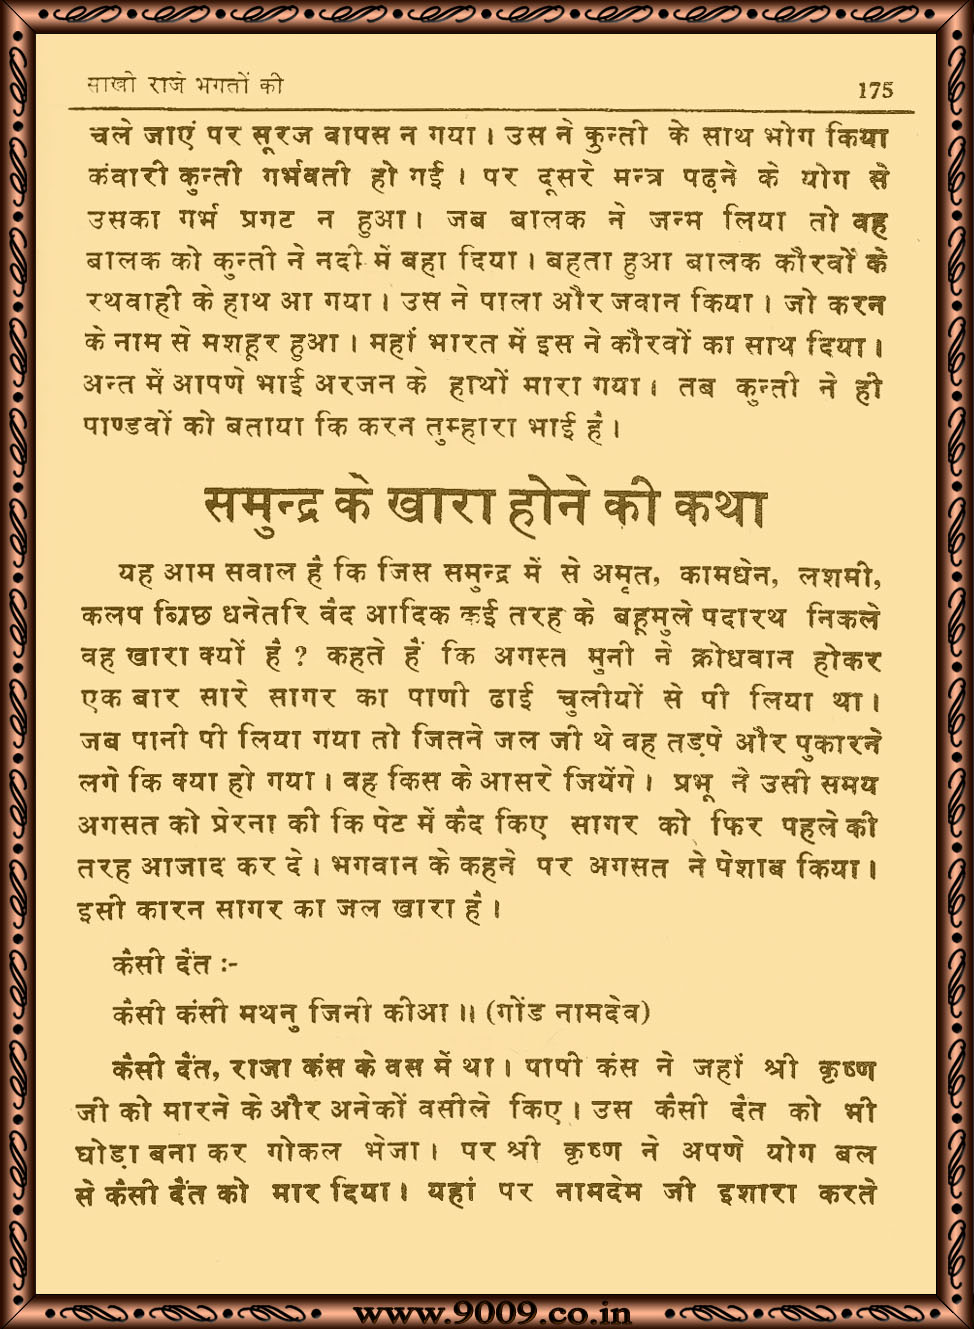 साखो राजे भगतों की 175
चले जाएं पर सूरज वापस न गया । उस ने कुन्ती के साथ भोग किया
कंवारी कुन्ती गर्भवती हो गई । पर दूसरे मन्त्र पढ़ने के योग से
उसका गर्भ प्रगट न हुआ। जब बालक ने जन्म लिया तो वह
बालक को कुन्ती ने नदी में बहा दिया । बहता हुआ बालक कौरवों के
रथवाही के हाथ आ गया । उस ने पाला और जवान किया । जो करन
के नाम से मशहूर हुआ । महां भारत में इस ने कौरवों का साथ दिया।
अन्त में आपणे भाई अरजन के हाथों मारा गया। तब कुन्ती ने ही
पाण्डवों को बताया कि करन तुम्हारा भाई है।
समुन्द्र के खारा होने की कथा
यह आम सवाल है कि जिस समुन्द्र में से अमृत, कामधेन, लशमी,
कलप ब्रिछ धनेतरि वैद आदिक कई तरह के बहूमुले पदारथ निकले
वह खारा क्यों है ? कहते हैं कि अगस्त मुनी ने क्रोधवान होकर
एक बार सारे सागर का पाणी ढाई चुलीयों से पी लिया था।
जब पानी पी लिया गया तो जितने जल जी थे वह तड़पे और पुकारने
लगे कि क्या हो गया । वह किस के आसरे जियेंगे । प्रभू ने उसी समय
अगसत को प्रेरना की कि पेट में कैद किए सागर को फिर पहले की
तरह आजाद कर दे । भगवान के कहने पर अगसत ने पेशाब किया।
इसी कारन सागर का जल खारा है ।
कैसी दैंत :-
कैसी कंसी मथनु जिनी कीआ ॥ (गोंड नामदेव)
कैसी दैंत, राजा कंस के वस में था । पापी कंस ने जहां श्री कृष्ण
जी को मारने के और अनेकों वसीले किए । उस कैसी दैंत को भी
घोड़ा बना कर गोकल भेजा । पर श्री कृष्ण ने अपणे योग बल
से कैसी दैंत को मार दिया । यहां पर नामदेम जी इशारा करते
www.9009.co.in